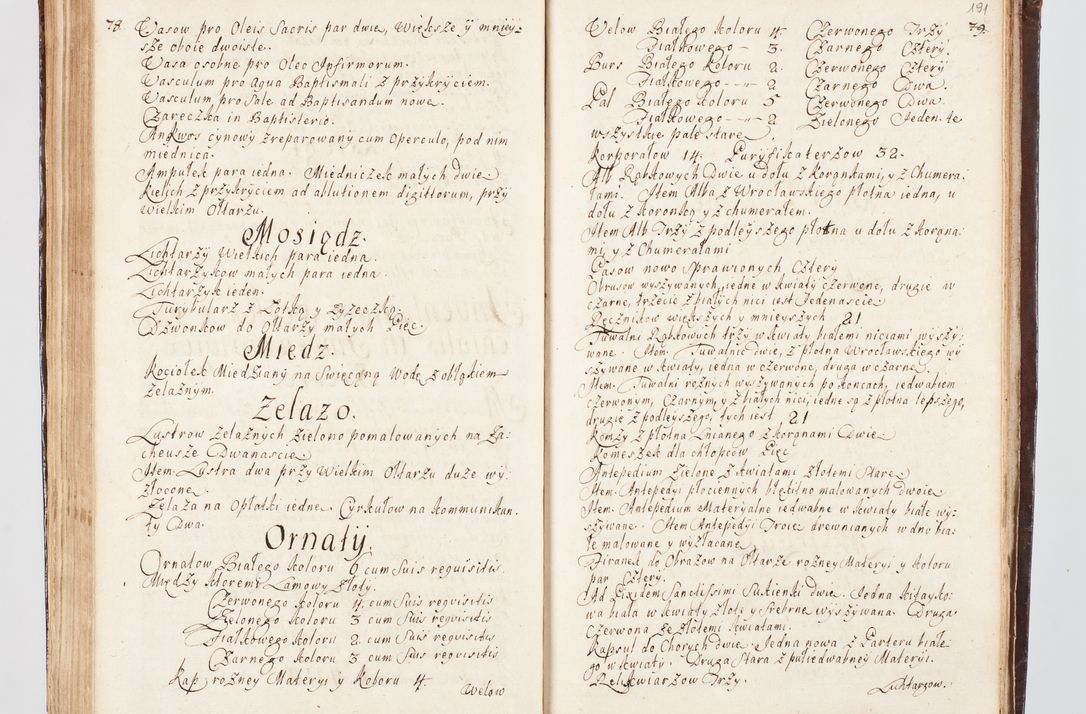 78.
Vasow pro Oleis Sacris par dwie, Większe ÿ mnieÿ-
sze oboie dwoiste.
Vasa osobne pro Oleo Infirmorum.
Vasculum pro Aqua Baptismali z przÿkrÿciem.
Vasculum pro Sale ad Baptisandum nowe.
Czareczka in Baptisterio.
Ankwos cÿnowÿ zreparowanÿ cum Operculo, pod nim
miednica.
Ampułek para iedna. Miedniczek małÿch dwie
Kielich z przÿkrÿciem ad ablutionem digittorum, przÿ
Wielkim Ołtarzu.
Mosiądz.
Lichtarzÿ Wielkich para iedna.
Lichtarzÿkow małÿch para iedna.
Lichtarzÿk ieden.
Turÿbularz z Łotką y Łÿzeczką.
Dzwonkow do Ołtarzÿ małÿch Pięc.
Miedz.
Kociołek Miedzianÿ na Swięconą Wodę z obłąkiem
Zelaznÿm.
Zelazo.
Lustrow Zelaznÿch Zielono pomalowanÿch na Za-
cheusze Dwanascie
Item Lustra dwa przÿ Wielkim Ołtarzu duże wÿ-
złocone.
Zelaza na Opłatki iedne. Cÿrkułow na Kommunikan-
tÿ Dwa.
Ornatÿ
Ornatow Białego Koloru 6 cum Suis requisitis.
Międzÿ ktoremi Lamowÿ Złotÿ.
Czerwonego Koloru 4. cum Suis requisitis
Zielonego Koloru 3 cum Suis requisitis
Fiałkowego Koloru 2 cum Suis requisitis
Czarnego Koloru 3 cum Suis requisitis
Kap rozneÿ Materÿi ÿ Koloru 4.
Welow
191
79.
Welow Białego Koloru 4. Czerwonego Trzÿ
Fiałkowego - 3. Czarnego Czterÿ.
Burs Białego Koloru 2. Czerwonego Czterÿ
Fiałkowego - - - 2 Czarnego Dwa.
Pal Białego Koloru 5 Czerwonego Dwa.
Fiałkowego - - - 2 Zielonego Jeden. te
wszÿstkie pale stare.
Korporałow 14. Purÿfikaterzow 32.
Alb Rąbkowych Dwie u dołu z Korąnkami, y z Chumera-
łami. Item Alba z Wrocławskiego płotna iedna, u
dołu z Koronką y z chumerałem.
Item Alb Trzÿ z podleÿszego płotna u dołu z Korąna-
mi, y z Chumerałami
Pasow nowo Sprawionÿch Czterÿ
Obrusow wÿszÿwanÿch, iedne w kwiatÿ czerwone, drugie w
czarne, trzecie z białÿch nici iest Jedenascie
Ręcznikow większÿch y mnieÿszÿch 21
Tuwalni Rąbkowÿch trzÿ w kwiatÿ białemi niciami wÿszÿ-
wane. Item. Tuwalnie dwie, z płotna Wrocławskiego wÿ
szÿwane w kwiatÿ, iedna w czerwone, druga w czarne.
Item. Tuwalni roznÿch wÿszÿwanÿch po koncach, iedwabiem
czerwonÿm, Czarnÿm, ÿ z białÿch nici, iedne są z płotna lepszego,
drugie z podleÿszego, tÿch iest 21
Komzÿ z płotna Lnianego z Korąnami Dwie
Komeszek dla chłopcow Pięc
Antepedium Zielone z kwiatami złotemi Stare
Item. Antepedÿi płociennÿch błękitno malowanÿch Dwoie
Item. Antepedium Materÿalne iedwabne w kwiatÿ białe wÿ-
szÿwane. Item Antepedÿi Troie drewnianÿch w dno bia-
łe malowane y wÿzłacane
Firanek do Obrazow na Ołtarze rozneÿ Materÿi y koloru
par Czterÿ.
Ad Pixidem Sanctissimi Sukienki dwie. Jedna kitaÿko-
wa biała w kwiatÿ złote ÿ srebrne wÿszÿwana. Druga
Czerwona ze złotemi kwiatami.
Kapsuł do Chorÿch dwie. Jedna nowa z Parteru białe-
go w kwiatÿ. Druga Stara z pułiedwabneÿ Materÿi.
Relikwiarzow Trzÿ.
Lichtarzow.